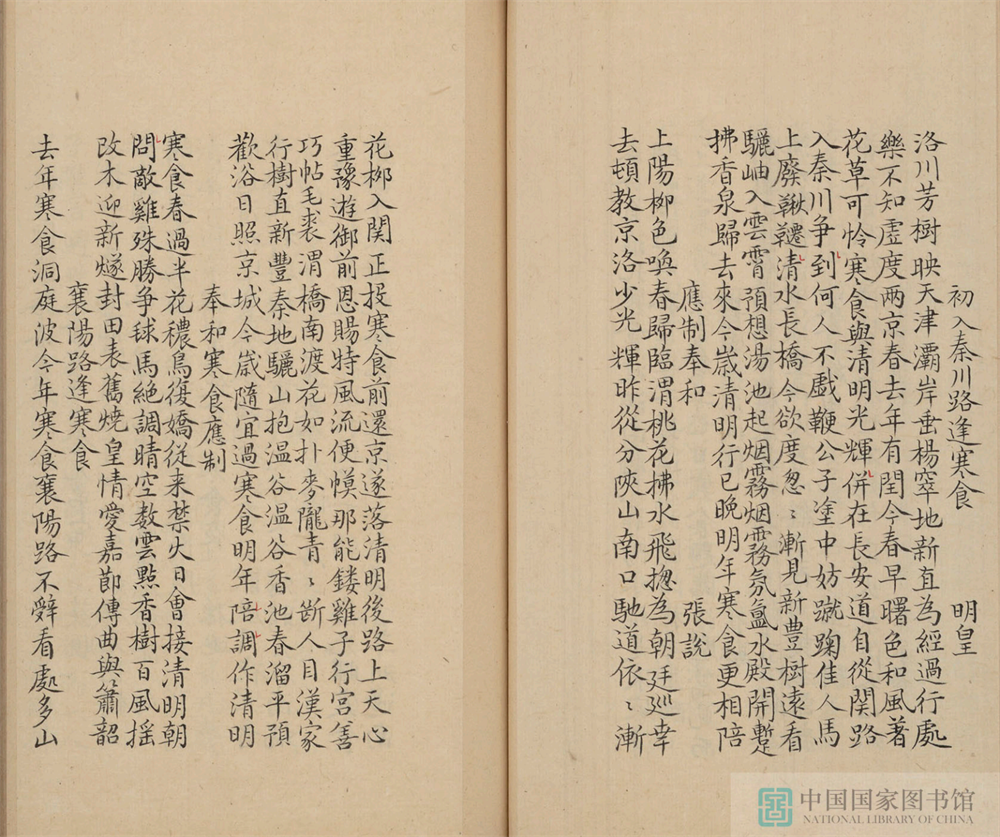 初入秦川路逢寒食 明皇
洛川芳樹映天津灞岸垂楊窣地新直為經過行處
樂不知虛度兩京春去年有閏今春早曙色和風著
花草可怜寒食與清明光輝併在長安道自從関路
入秦川争到何人不戯鞭公子塗中妨蹴踘佳人馬
上廢鞦韆清水長橋今欲度怱〻漸見新豊樹遠看
驪岫入雲霄預想湯池起烟霧烟霧氛氳水殿開蹔
拂香泉歸去來今歳清明行已晚明年寒食更相陪
應制奉和 張說
上陽柳色喚春歸臨渭桃花拂水飛揔為朝廷巡幸
去頓教京洛少光輝昨從分陝山南口馳道依〻漸
花柳入関正投寒食前還京遂落清明後路上天心
重豫遊御前恩賜特風流便幙那能鏤雞子行宮善
巧帖毛裘渭橋南渡花如扑麥隴青〻斷人目漢家
行樹直新豐秦地驪山抱溫谷溫谷香池春溜平預
歡浴日照京城今歳隨宜過寒食明年陪調作清明
奉和寒食應制
寒食春過半花穠鳥復嬌從来禁火日會接清明朝
問敵雞殊勝争毬馬絶調晴空数雲點香樹百風揺
改木迎新燧封田表舊燒皇情愛嘉節傳曲與簫韶
襄陽路逢寒食
去年寒食洞庭波今年寒食襄陽路不辭看處多山
中国国家图书馆
NATIONAL LIBRARY OF CHINA